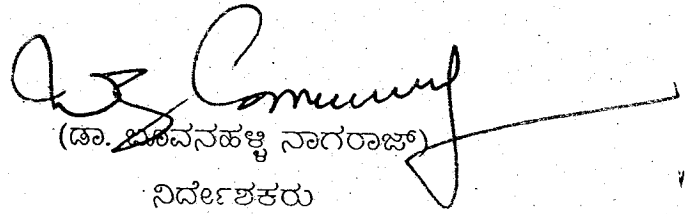 (ಡಾ. ಬೂವನಹಳ್ಳಿ ನಾಗರಾಜ್)
ನಿರ್ದೇಶಕರು